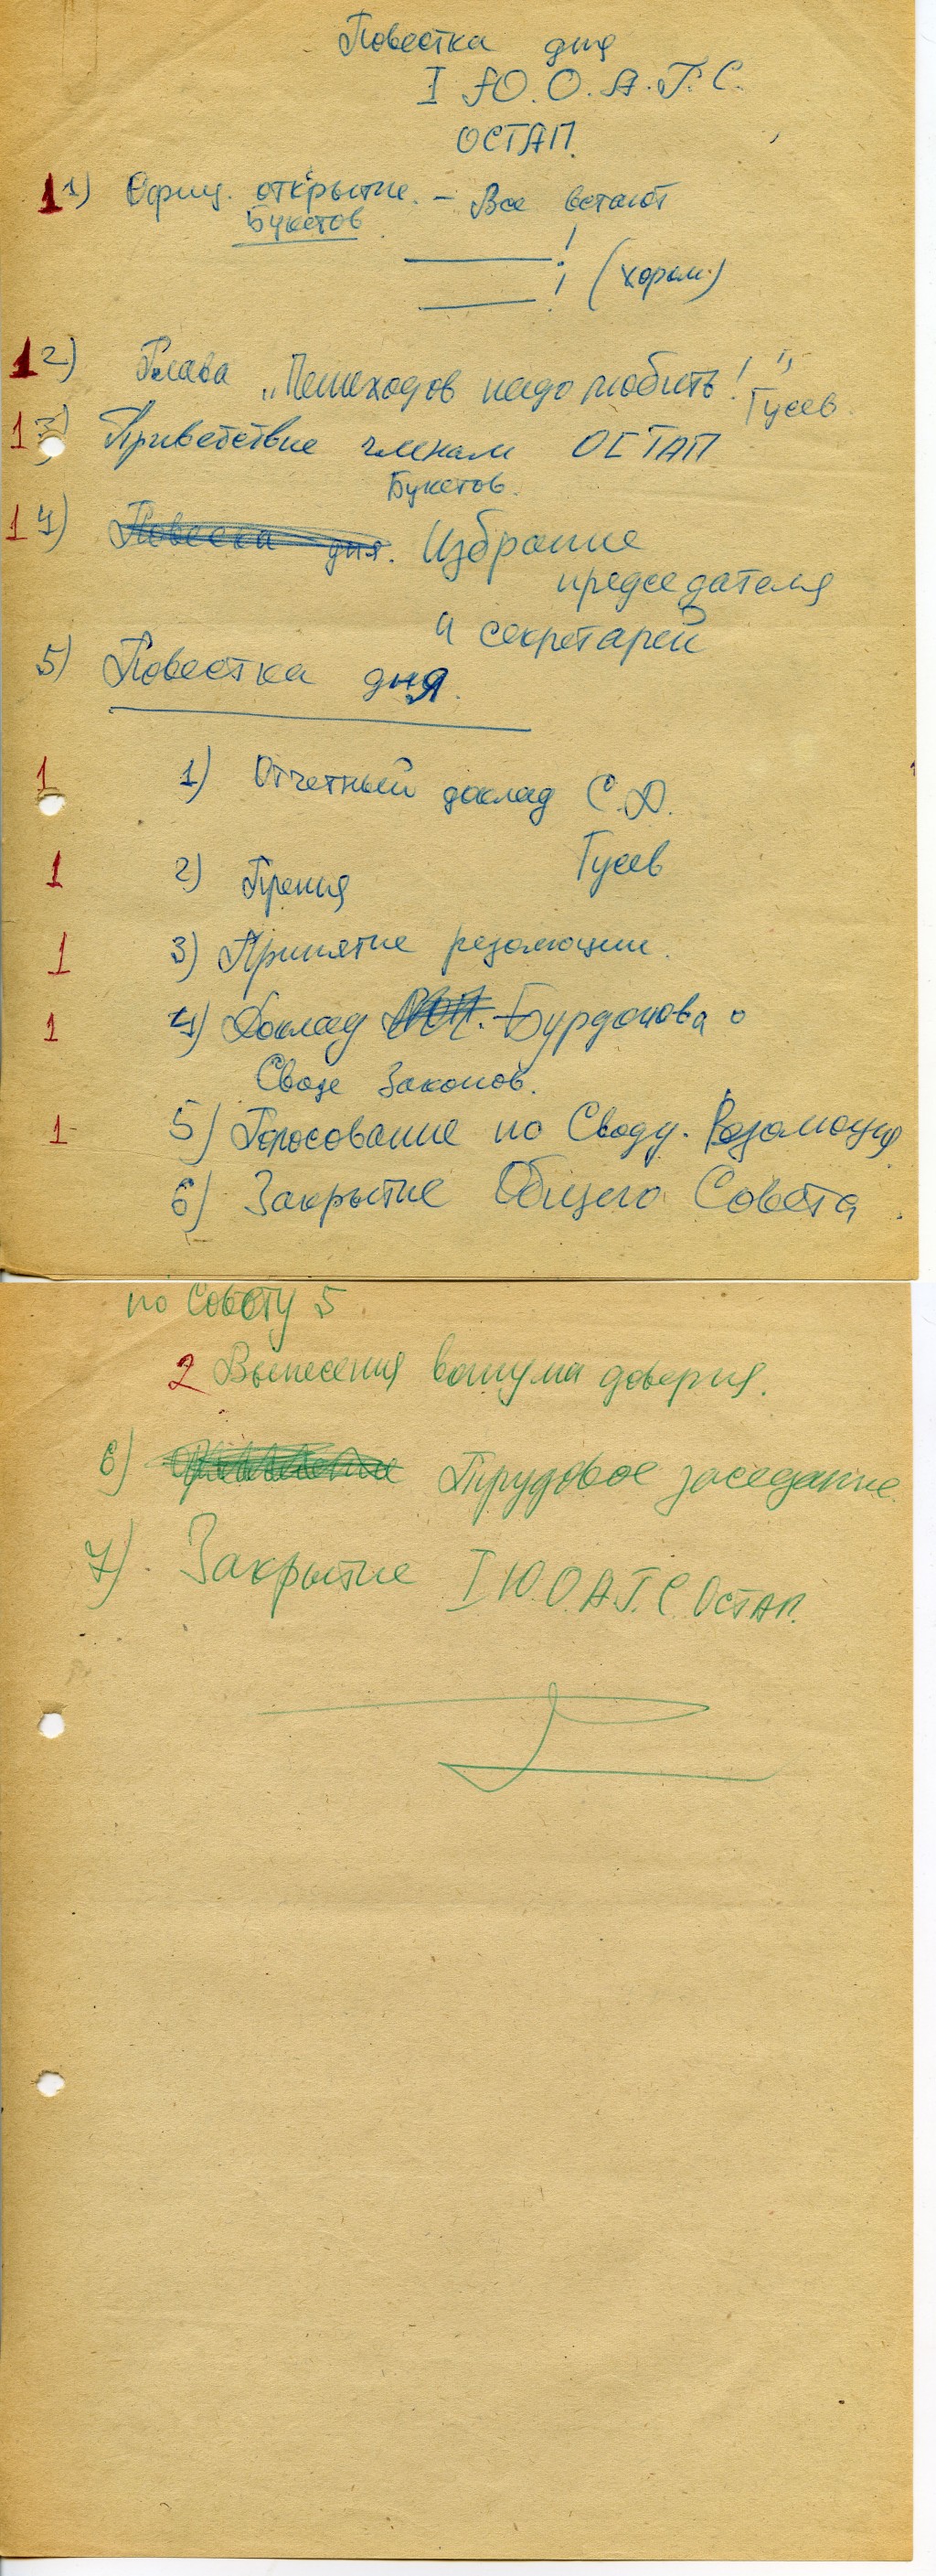 Повестка дня
I Ю.О.А.Г.С.
ОСТАП.
1 1) Офиц. открытие. – Все встают
Букетов
!
! (хором)
1 2) Глава „Пешеходов надо любить!"
Гусев.
1 3) Приветствие членам ОСТАП
Букетов.
1 4) Повеска дня. Избрание
председателя
и секретарей
5) Повестка дня.
1 1) Отчетный доклад С.Д.
Гусев
1 2) Прения
1 3) Принятие резолюции.
1 4) Доклад Бурдонова о
Своде Законов.
1 5) Голосование по Своду. Резолюция
6) Закрытие Общего Совета.
по Совету 5
2 Вынесения вотума доверия.
6) Трудовое заседание.
7). Закрытие I Ю.О.А.Г.С. Остап.